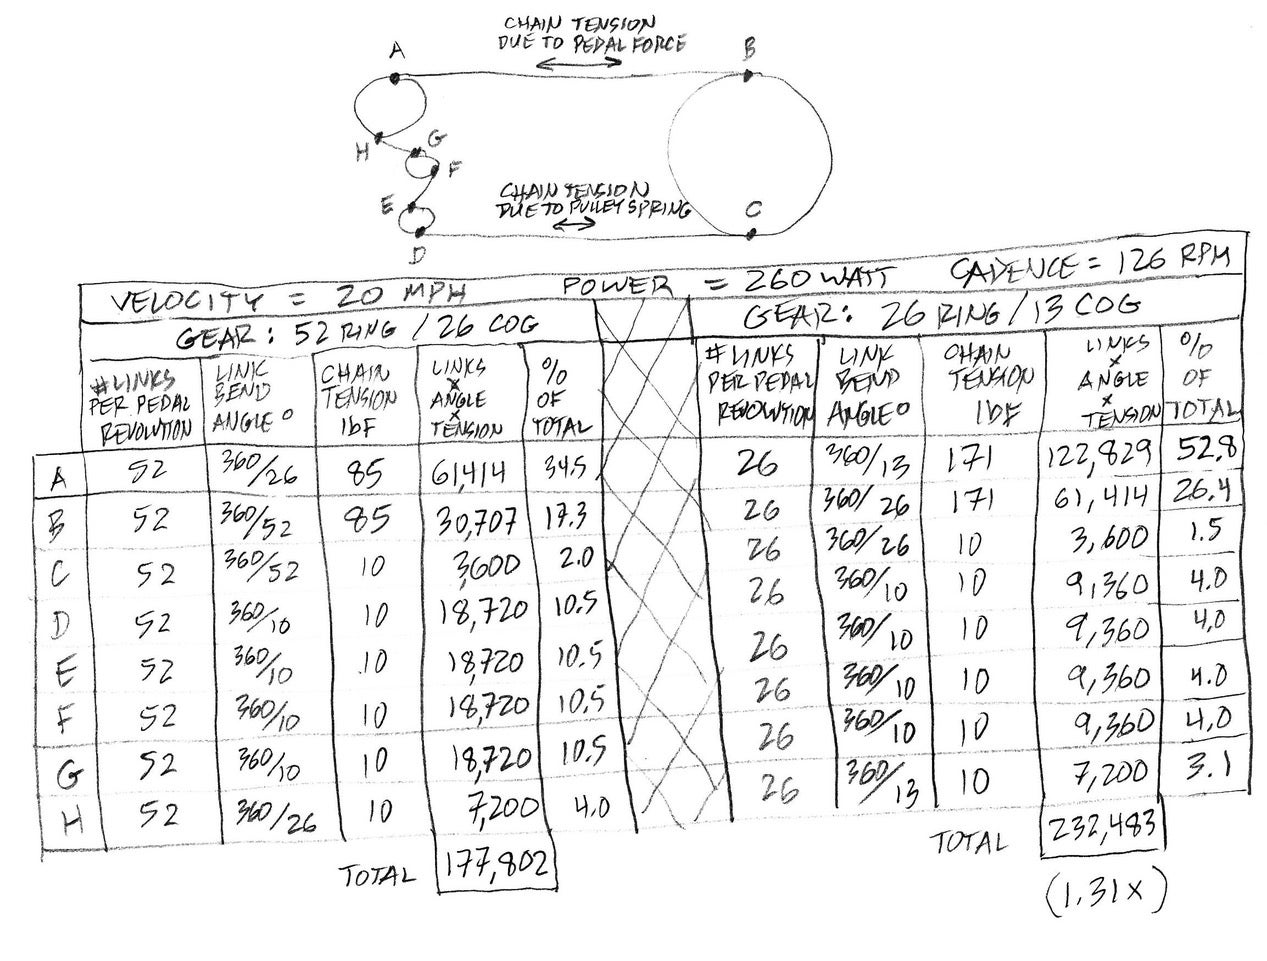 CHAIN TENSION
DUE TO PEDAL FORCE
A
B
H
G
F
E
D
C
CHAIN TENSION
DUE TO PULLEY SPRING
VELOCITY = 20 MPH POWER = 260 WATT CADENCE = 126 RPM
GEAR: 52 RING / 26 COG
GEAR: 26 RING / 13 COG
# LINKS PER PEDAL REVOLUTION
LINK BEND ANGLE °
CHAIN TENSION lbF
LINKS x ANGLE x TENSION
% OF TOTAL
# LINKS PER PEDAL REVOLUTION
LINK BEND ANGLE °
CHAIN TENSION lbF
LINKS x ANGLE x TENSION
% OF TOTAL
A 52 360/26 85 61,414 34.5 26 360/13 171 122,829 52.8
B 52 360/52 85 30,707 17.3 26 360/26 171 61,414 26.4
C 52 360/52 10 3,600 2.0 26 360/26 10 3,600 1.5
D 52 360/10 10 18,720 10.5 26 360/10 10 9,360 4.0
E 52 360/10 10 18,720 10.5 26 360/10 10 9,360 4.0
F 52 360/10 10 18,720 10.5 26 360/10 10 9,360 4.0
G 52 360/10 10 18,720 10.5 26 360/10 10 9,360 4.0
H 52 360/26 10 7,200 4.0 26 360/13 10 7,200 3.1
TOTAL 177,802
TOTAL 232,483
(1.31x)